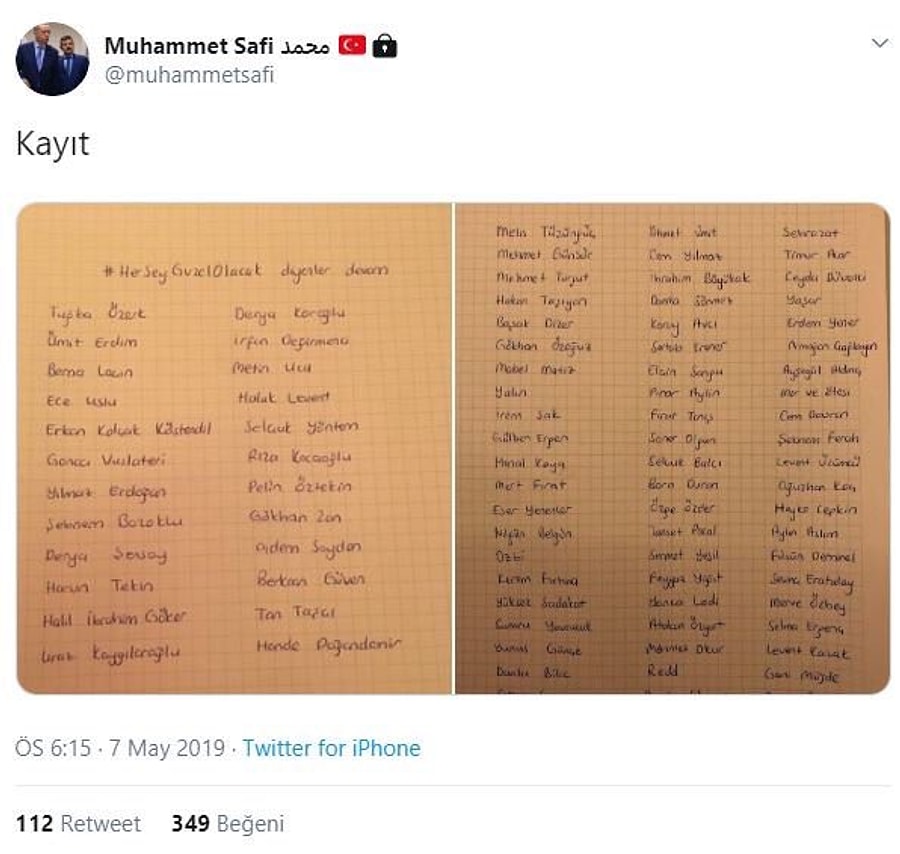 Muhammet Safi محمد
@muhammetsafi
Kayıt
#HerSeyGuzelOlacak diyenler devam
Tuğba Özerk
Ümit Erdim
Berna Laçin
Ece Uslu
Erkan Kolçak Köstendil
Gonca Vuslateri
Yılmaz Erdoğan
Şebnem Bozoklu
Derya Şensoy
Harun Tekin
Halil İbrahim Göker
Derya Köroğlu
İrfan Değirmenci
Metin Uca
Haluk Levent
Selçuk Yöntem
Rıza Kocaoğlu
Pelin Öztekin
Gökhan Zan
Didem Soydan
Berkcan Güven
Tan Taşçı
Hande Doğandemir
Melis Tüzüngüç
Mehmet Günsür
Mehmet Turgut
Hakan
Başak Dizer
Gökhan Özoğuz
Mabel Matiz
Yalın
İrem Sak
Gülben Ergen
Hünal Kaya
Mert Fırat
Eser Yenenler
Nilgün Belgün
Özbi
Kerem Fırtına
Yüksek Sadakat
Gürgen
Ahmet Ümit
Cem Yılmaz
İbrahim Büyükak
Damla Sönmez
Koray Avcı
Sertab Erener
Elçin Sangu
Pınar Aylin
Fırat Tanış
Soner Olgun
Selçuk Balcı
Bora Duran
Özge Özder
Sermet Yeşil
Feyyaz Yiğit
Manuş Baba
Mehmet Okur
Redd
Şehrazat
Timur Acar
Ceyda Düvenci
Yaşar
Erdem Yener
Armağan Çağlayan
Ayşegül Aldinç
Mor ve Ötesi
Şebnem Ferah
Levent Üzümcü
Oğuzhan Koç
Hayko Cepkin
Aylin Aslım
Füsun Demirel
Sevinç Erbulak
Merve Özbey
Selma Ergeç
Levent Kazak
Gani Müjde
ÖS 6:15 · 7 May 2019 · Twitter for iPhone
112 Retweet 349 Beğeni